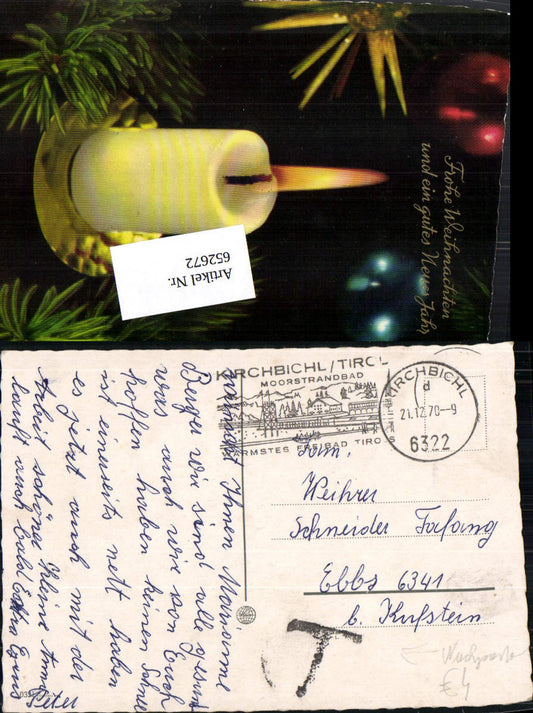 Frohe Weihnachten
und ein gutes Neues Jahr
Artikel Nr.
652672
KIRCHBICHL/TIROL
MOORSTRANDBAD
WÄRMSTES FREIBAD TIROLS
KIRCHBICHL
d
21.12.70-9
6322
Fam.
Weihrer
Schneider
Ebbs 6341
b. Kufstein
T
€ 4
wünscht Ihnen Marianne
wir sind alle gesund
was auch wir von Euch
hoffen haben keinen Schnee
ist einerseits nett haben
es jetzt auch mit der
Arbeit schöner Kleine
lauft auch bald
Peter